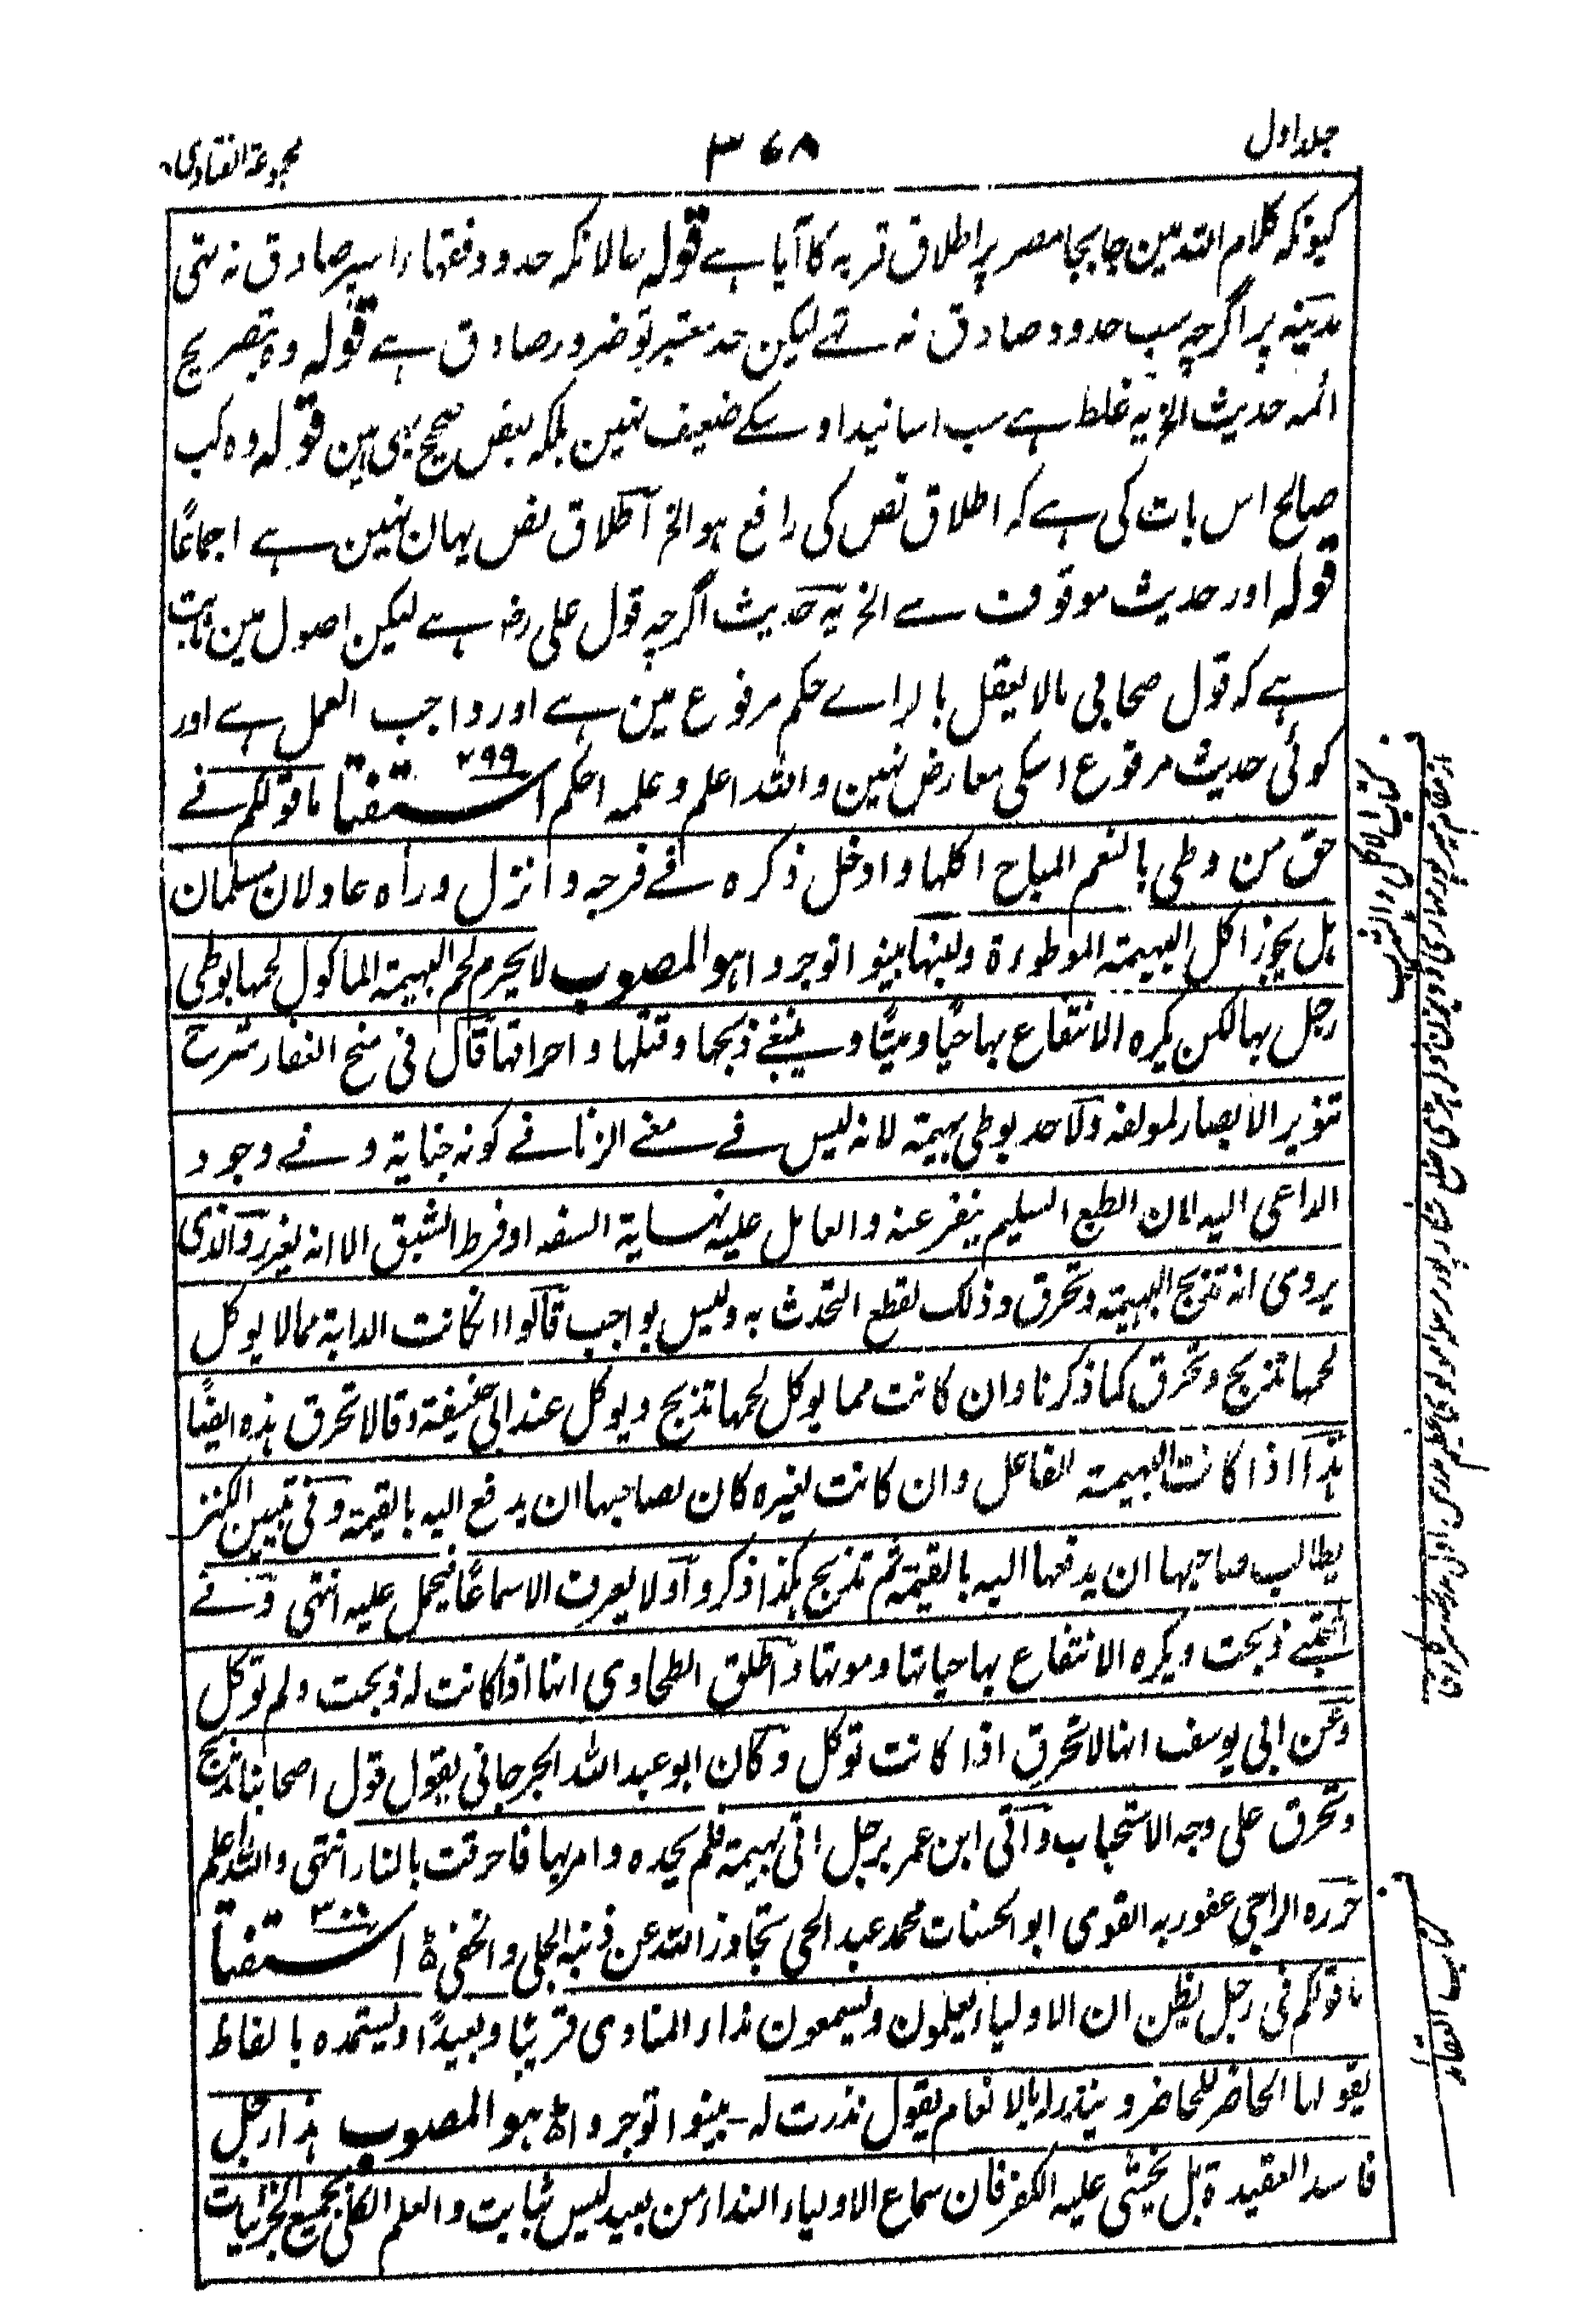 جلد اول
۳۶۸
مجموعة الفتاوی
کیونکہ کلام اللہ مین جا بجا مصر پر اطلاق قریہ کا آیا ہے قولہ حالانکہ حدود فقہاء اسپر صادق نہ تہی
مدینہ پر اگرچہ سب حدود صادق نہ تہے لیکن حد معتبر تو ضرور صادق ہے قولہ وہ بتصریح
ائمہ حدیث الخ یہ غلط ہے سب اسانید اوسکے ضعیف نہین بلکہ بعض صحیح بہی ہین قولہ وہ کب
صالح اس بات کی ہے کہ اطلاق نص کی رافع ہو الخ اطلاق نص یہان نہین ہے اجماعًا
قولہ اور حدیث موقوف سے الخ یہ حدیث اگرچہ قول علی رضہ ہے لیکن اصول مین ثابت
ہے کہ قول صحابی مالا یعقل بالراے حکم مرفوع مین ہے اور واجب العمل ہے اور
کوئی حدیث مرفوع اسکی معارض نہین واللہ اعلم وعلمہ احکم استفتا ۲۹۹ ما قولکم فے
حق من وطی بالنعم المباح اکلہا وادخل ذکرہ فے فرجہ وانزل ورأہ عادلان مسلمان
ہل یجوز اکل البہیمۃ الموطوءۃ ولبنہا بینوا توجروا ہو المصوب لا یحرم لحم البہیمۃ الماکول لحمہا بوطی
رجل بہا لکن یکرہ الانتفاع بہا حیًا ومیتًا وینبغے ذبحہا وقتلہا واحراقہا قال فی منح الغفار شرح
تنویر الابصار لمولفہ ولا حد بوطی بہیمۃ لانہ لیس فے معنے الزنا فے کونہ جنایۃ وفے وجود
الداعی الیہ لان الطبع السلیم ینفر عنہ والحامل علیہ نہایۃ السفہ او فرط الشبق الا انہ یعزر والذی
یروی انہ تذبح البہیمۃ وتحرق وذلک لقطع التحدث بہ ولیس بواجب قالوا انکانت الدابۃ مما لا یوکل
لحمہا تذبح وتحرق کما ذکرنا وان کانت مما یوکل لحمہا تذبح ویوکل عند ابی حنیفۃ وقالا تحرق ہذہ ایضًا
ہذا اذا کانت البہیمۃ للفاعل وان کانت لغیرہ کان لصاحبہا ان یدفع الیہ بالقیمۃ وفی تبیین الکنز
یطالب صاحبہا ان یدفعہا الیہ بالقیمۃ ثم تذبح ہکذا ذکروا ولا یعرف الا سماعًا فیحمل علیہ انتہی وفے
المجتبے ذبحت ویکرہ الانتفاع بہا حیاتہا وموتہا واطلق الطحاوی انہا اذا کانت لہ ذبحت ولم توکل
وعن ابی یوسف انہا لا تحرق اذا کانت توکل وکان ابو عبد اللہ الجرجانی یقول قول اصحابنا تذبح
وتحرق علی وجہ الاستحباب واتی ابن عمر برجل اتی بہیمۃ فلم یحدہ وامر بہا فاحرقت بالنار انتہی واللہ اعلم
حررہ الراجی عفو ربہ القوی ابو الحسنات محمد عبد الحی تجاوز اللہ عن ذنبہ الجلی والخفی استفتا ۳۰۰
ما قولکم فی رجل یظن ان الاولیاء یعلمون ویسمعون نداء المنادی قریبًا وبعیدًا ویستمدہ بالفاظ
یقولہا الحاضر للحاضر وینذر لہ بالانعام یقول نذرت لہ - بینوا توجروا ہو المصوب ہذا رجل
فاسد العقیدۃ بل یخشی علیہ الکفر فان سماع الاولیاء النداء من بعید لیس بثابت والعلم الکلی بجمیع الجزئیات